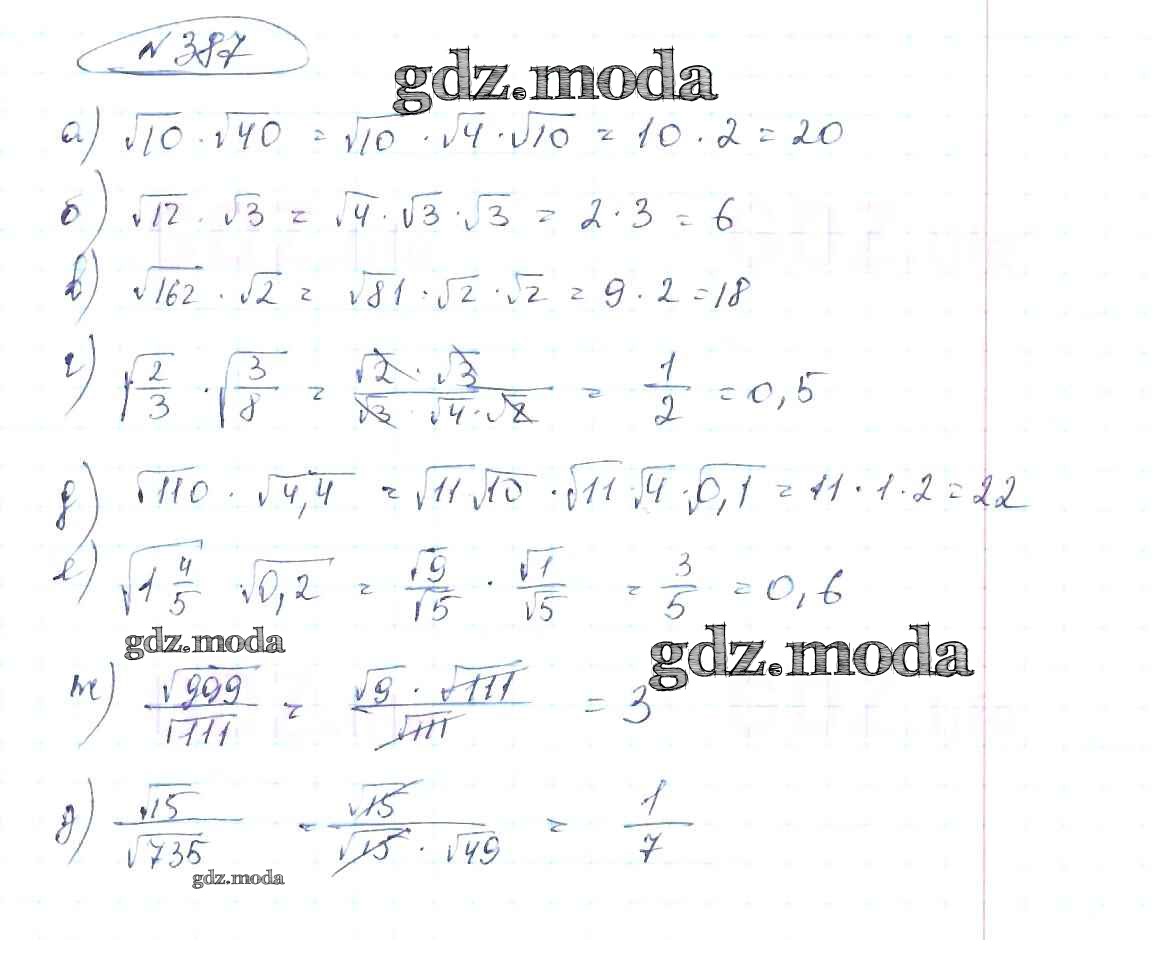 № 387
gdz.moda
а) √10 · √40 = √10 · √4 · √10 = 10 · 2 = 20
б) √12 · √3 = √4 · √3 · √3 = 2 · 3 = 6
в) √162 · √2 = √81 · √2 · √2 = 9 · 2 = 18
г) √(2/3) · √(3/8) = (√2 · √3)/(√3 · √4 · √2) = 1/2 = 0,5
д) √110 · √4,4 = √11 √10 · √11 · √4 · √0,1 = 11 · 1 · 2 = 22
е) √(1 4/5) √0,2 = √9/√5 · √1/√5 = 3/5 = 0,6
gdz.moda
gdz.moda
ж) √999/√111 = (√9 · √111)/√111 = 3
з) √15/√735 = √15/(√15 · √49) = 1/7
gdz.moda